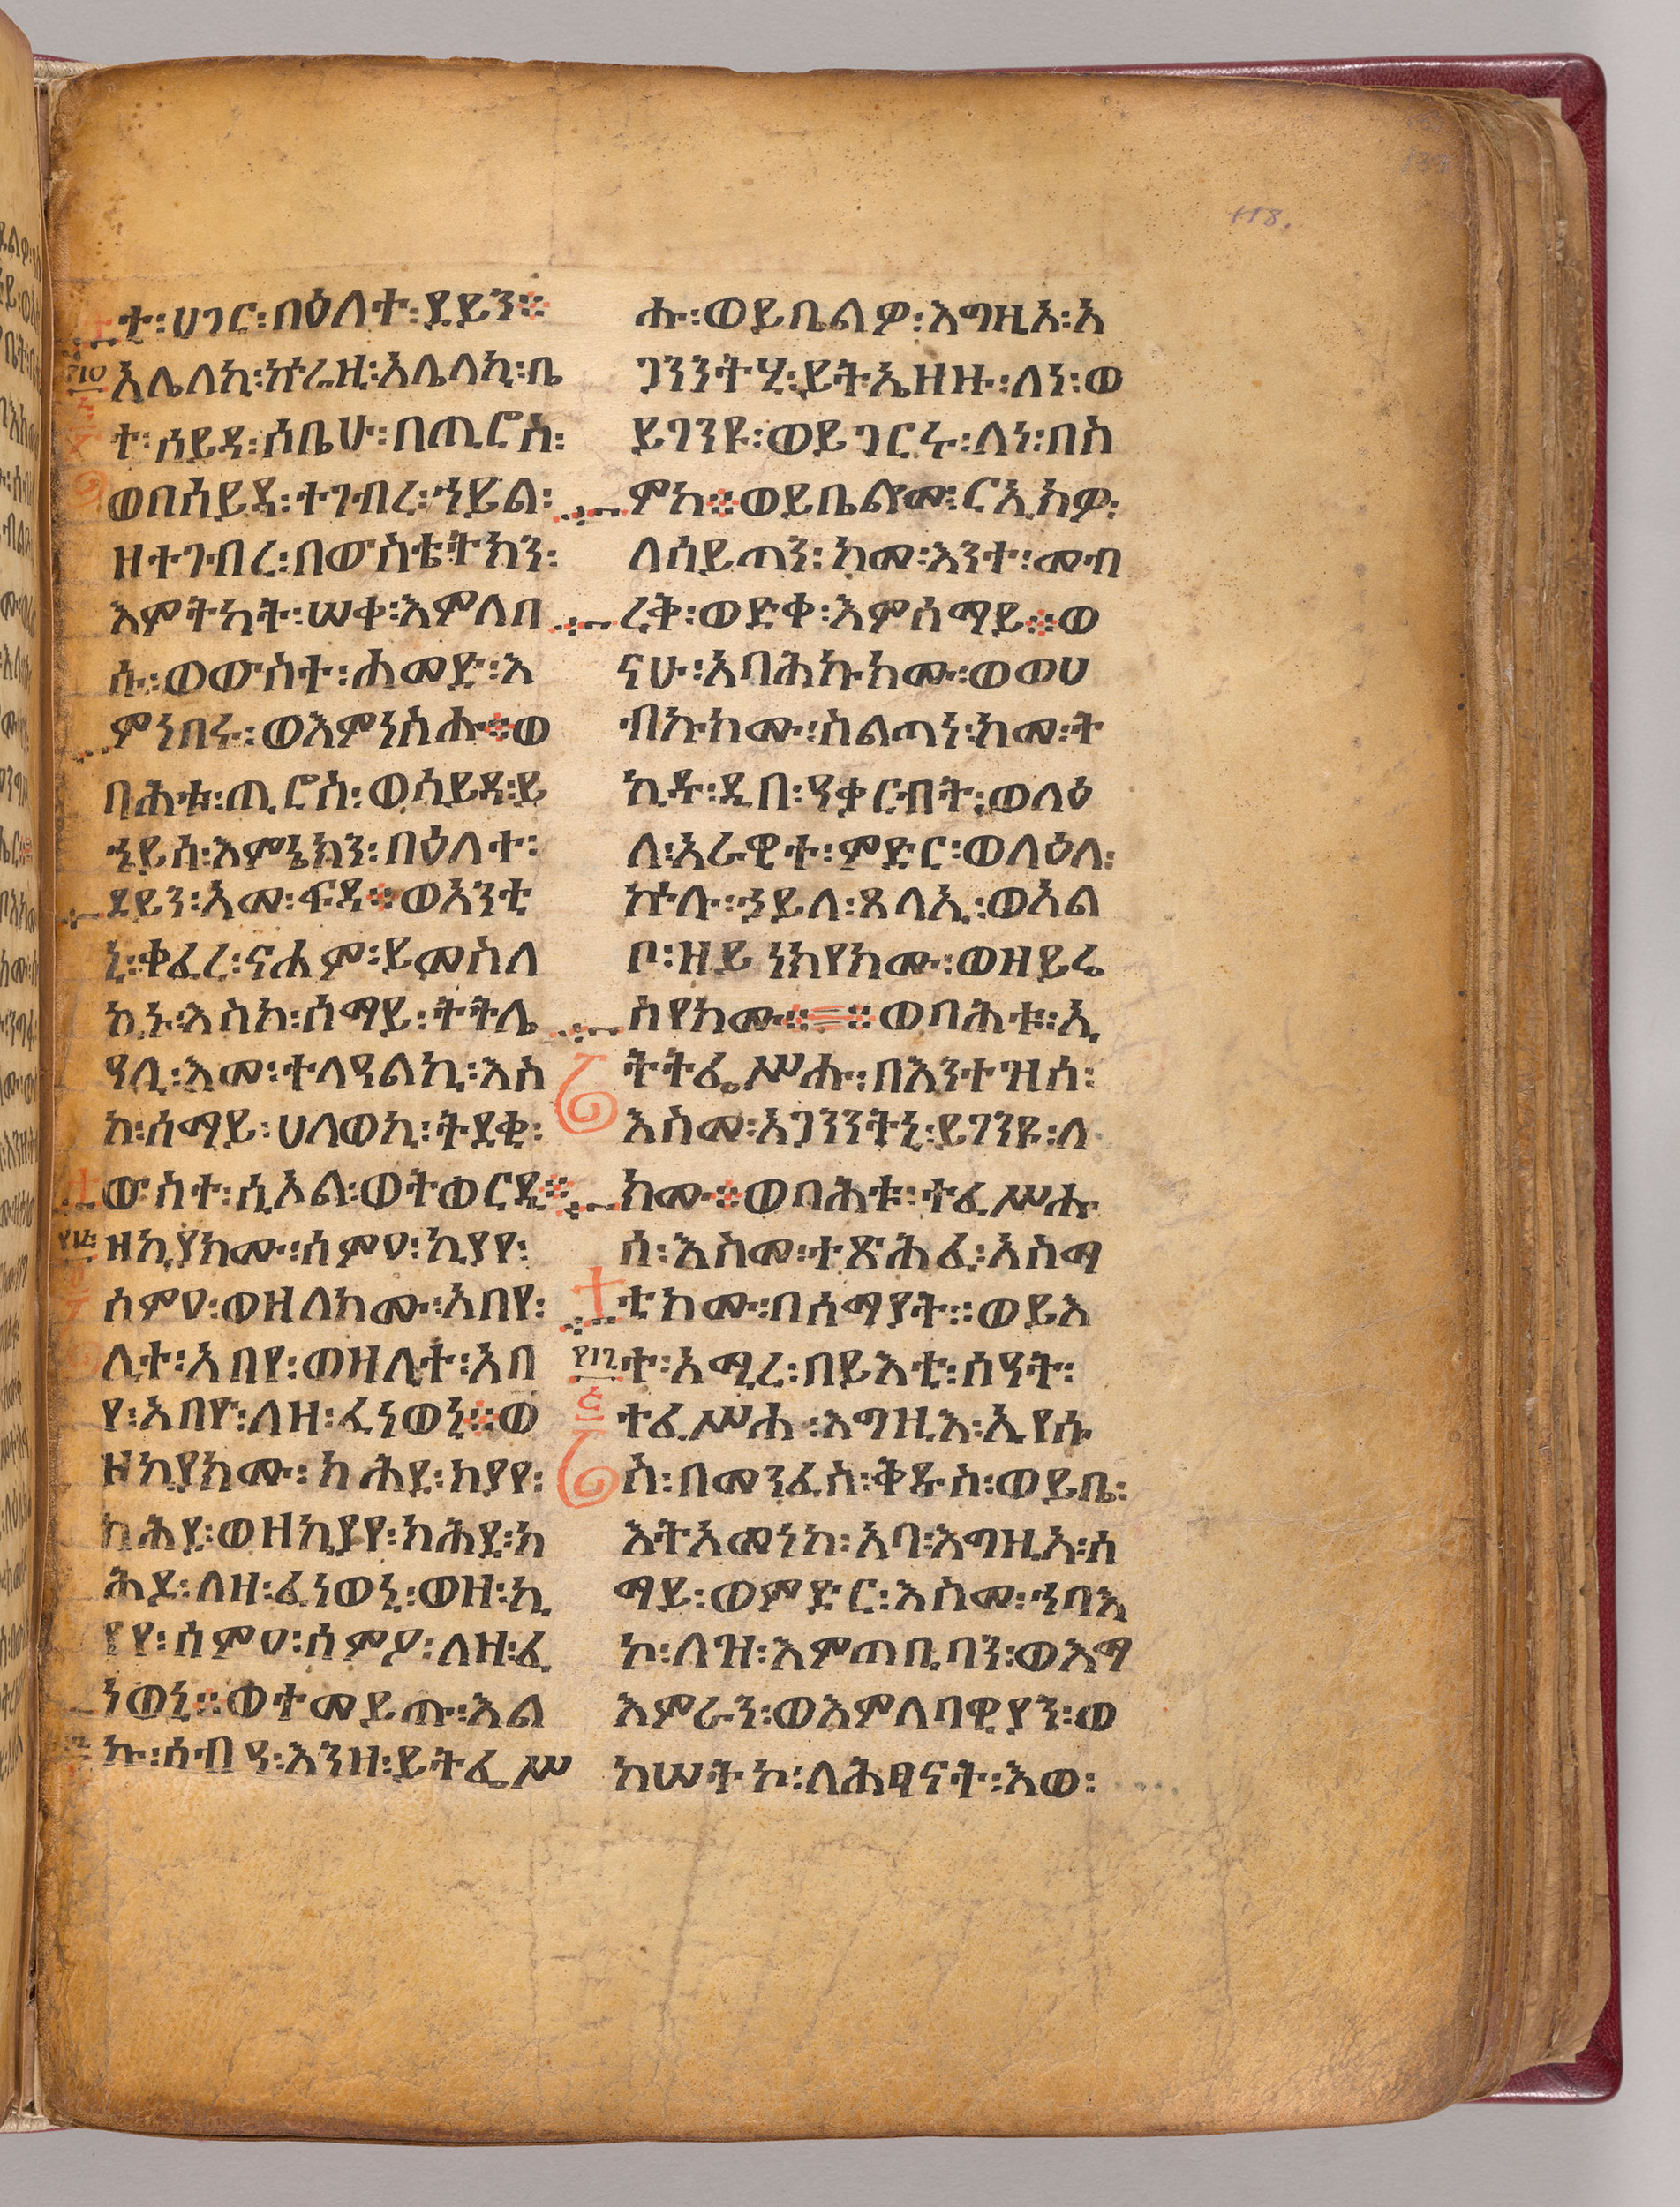 118.
ቲ፡ሀገር፡በዕለተ፡ደይን፨
አሌለኪ፡ኮራዚ፡አሌላኪ፡ቤ
ተ፡ሰይዳ፡ሰቤሁ፡በጢሮስ፡
ወበሰይዳ፡ተገብረ፡ኀይል፡
ዘተገብረ፡በውስቴትክን፡
እምትካት፡ሠቀ፡እምለበ
ሱ፡ወውስተ፡ሐመድ፡እ
ምነበሩ፡ወእምነስሑ፨ወ
ባሕቱ፡ጢሮስ፡ወሲይዳ፡ይ
ኄይሳ፡እምኔክን፡በዕለተ፡
ደይን፡አመ፡ፍዳ፨ወአንቲ
ኒ፡ቀፈረ፡ናሐም፡ይመስለ
ኪኑ፡እስከ፡ሰማይ፡ትትሌ
ዓሊ፡እመ፡ተለዓልኪ፡እስ
ከ፡ሰማይ፡ሀለወኪ፡ትደቂ፡
ውስተ፡ሲኦል፡ወትወርዲ፨
ዘኪያክሙ፡ሰምዐ፡ኪያየ፡
ሰምዐ፡ወዘለክሙ፡አበየ፡
ሊተ፡አበየ፡ወዘሊተ፡አበ
የ፡አበዮ፡ለዘ፡ፈነወኒ፨ወ
ዘኪያክሙ፡ክሕደ፡ኪያየ፡
ክሕደ፡ወዘኪያየ፡ክሕደ፡ክ
ሕደ፡ለዘ፡ፈነወኒ፡ወዘ፡ኪ
ያየ፡ሰምዐ፡ሰምዖ፡ለዘ፡ፈ
ነወኒ፨ወተመይጡ፡እል
ኩ፡ሰብዓ፡እንዘ፡ይትፌሥ
ሑ፡ወይቤልዎ፡እግዚእ፡አ
ጋንንትሂ፡ይትኤዘዙ፡ለነ፡ወ
ይገንዩ፡ወይገርሩ፡ለነ፡በስ
ምከ፨ወይቤሎሙ፡ርኢክዎ፡
ለሰይጣን፡ከመ፡እንተ፡መብ
ረቅ፡ወድቀ፡እምሰማይ፨ወ
ናሁ፡አባሕኩክሙ፡ወወሀ
ብኩክሙ፡ስልጣነ፡ከመ፡ት
ኪዱ፡ዲበ፡ዓቃርብት፡ወለዕ
ለ፡አራዊተ፡ምድር፡ወለዕለ፡
ኵሉ፡ኃይለ፡ጸላኢ፡ወአል
ቦ፡ዘይነክየክሙ፡ወዘይሬ
ስየክሙ፨፨ወባሕቱ፡ኢ
ትትፌሥሑ፡በእንተዝሰ፡
እስመ፡አጋንንትኒ፡ይገንዩ፡ለ
ክሙ፨ወባሕቱ፡ተፈሥሑ
ሰ፡እስመ፡ተጽሕፈ፡አስማ
ቲክሙ፡በሰማያት፡፡ወይእ
ተ፡አሚረ፡በይእቲ፡ሰዓት፡
ተፈሥሐ፡እግዚእ፡ኢየሱ
ስ፡በመንፈስ፡ቅዱስ፡ወይቤ፡
እትአመነከ፡አባ፡እግዚአ፡ሰ
ማይ፡ወምድር፡እስመ፡ኀባእ
ኮ፡ለዝ፡እምጠቢባን፡ወእማ
እምራን፡ወእምለባዊያን፡ወ
ከሠትኮ፡ለሕፃናት፡እወ፡